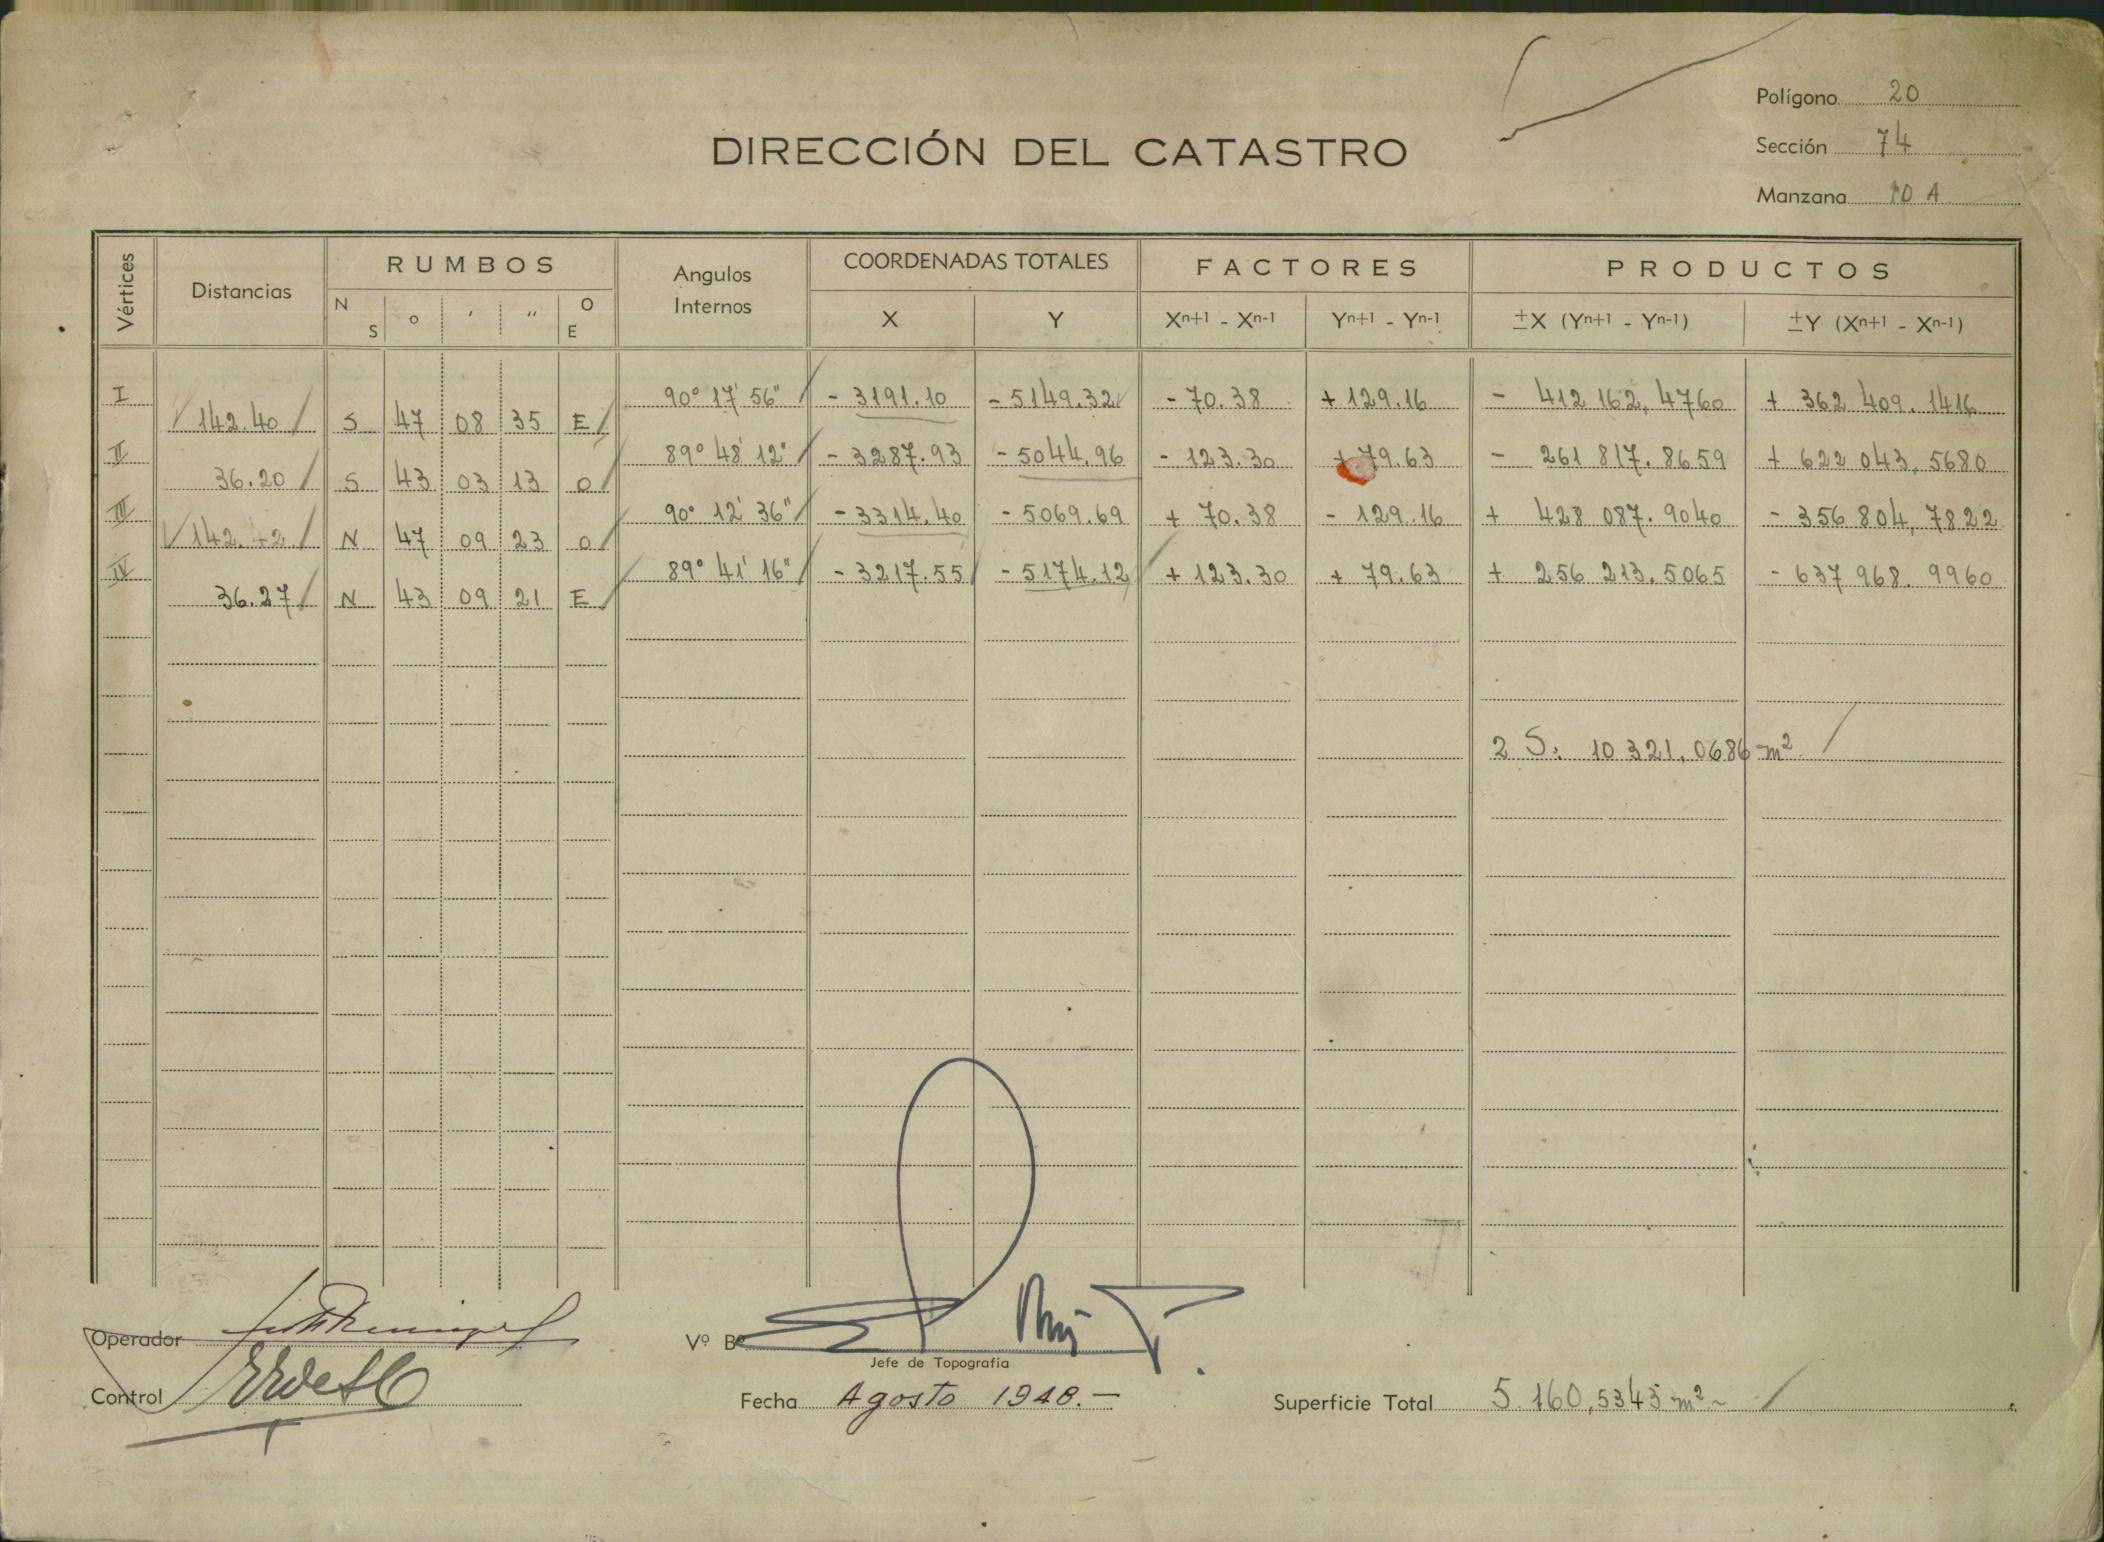 Polígono 20
DIRECCIÓN DEL CATASTRO
Sección 74
Manzana 10 A
Vértices Distancias RUMBOS Angulos Internos COORDENADAS TOTALES FACTORES PRODUCTOS
N S ° ' " O E X Y Xn+1 - Xn-1 Yn+1 - Yn-1 ±X (Yn+1 - Yn-1) ±Y (Xn+1 - Xn-1)
I 90° 17' 56" - 3191.10 - 5149.32 - 70.38 + 129.16 - 412 162,4760 + 362 409.1416
142.40 S 47 08 35 E
II 89° 48' 12" - 3287.93 - 5044.96 - 123.30 + 79.63 - 261 817.8659 + 622 043,5680
36.20 S 43 03 13 O
III 90° 12' 36" - 3314.40 - 5069.69 + 70.38 - 129.16 + 428 087.9040 - 356 804,7822
142.42 N 47 09 23 O
IV 89° 41' 16" - 3217.55 - 5174.12 + 123.30 + 79.63 + 256 213.5065 - 637 968.9960
36.27 N 43 09 21 E
2 S: 10 321,0686 m²
Operador
Vº Bº
Jefe de Topografía
Control
Fecha Agosto 1948.-
Superficie Total 5.160,5343 m²